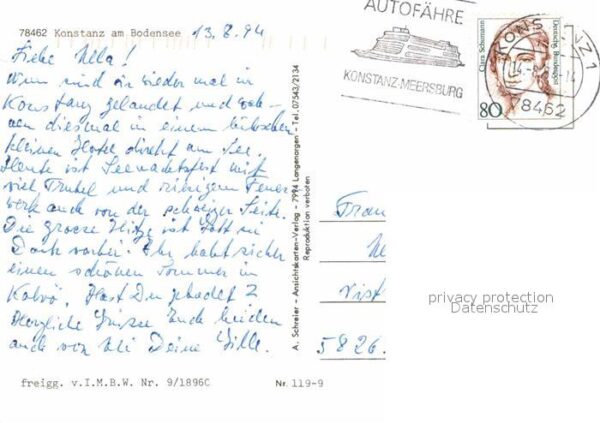 78462 Konstanz am Bodensee 13.8.94
Liebe Ulla!
Nun sind wir wieder mal in
Konstanz gelandet und woh-
nen diesmal in einem hübschen
kleinen Hotel direkt am See.
Heute ist Seenachtsfest mit
viel Trubel und riesigem Feuer
werk auch von der schweizer Seite.
Die grosse Hitze ist Gott sei
Dank vorbei. Ihr habt sicher
einen schönen Sommer in
Hast Du gebadet?
Herzliche Grüsse Euch beiden
auch von Deine
freigg. v.I.M.B.W. Nr. 9/1896C
Nr. 119-9
A. Schreier - Ansichtskarten-Verlag - 7994 Langenargen - Tel. 07543/2134
Reproduktion verboten
AUTOFÄHRE
KONSTANZ-MEERSBURG
Clara Schumann
Deutsche Bundespost
80
KONSTANZ 1
78462
Frau
5826
privacy protection
Datenschutz